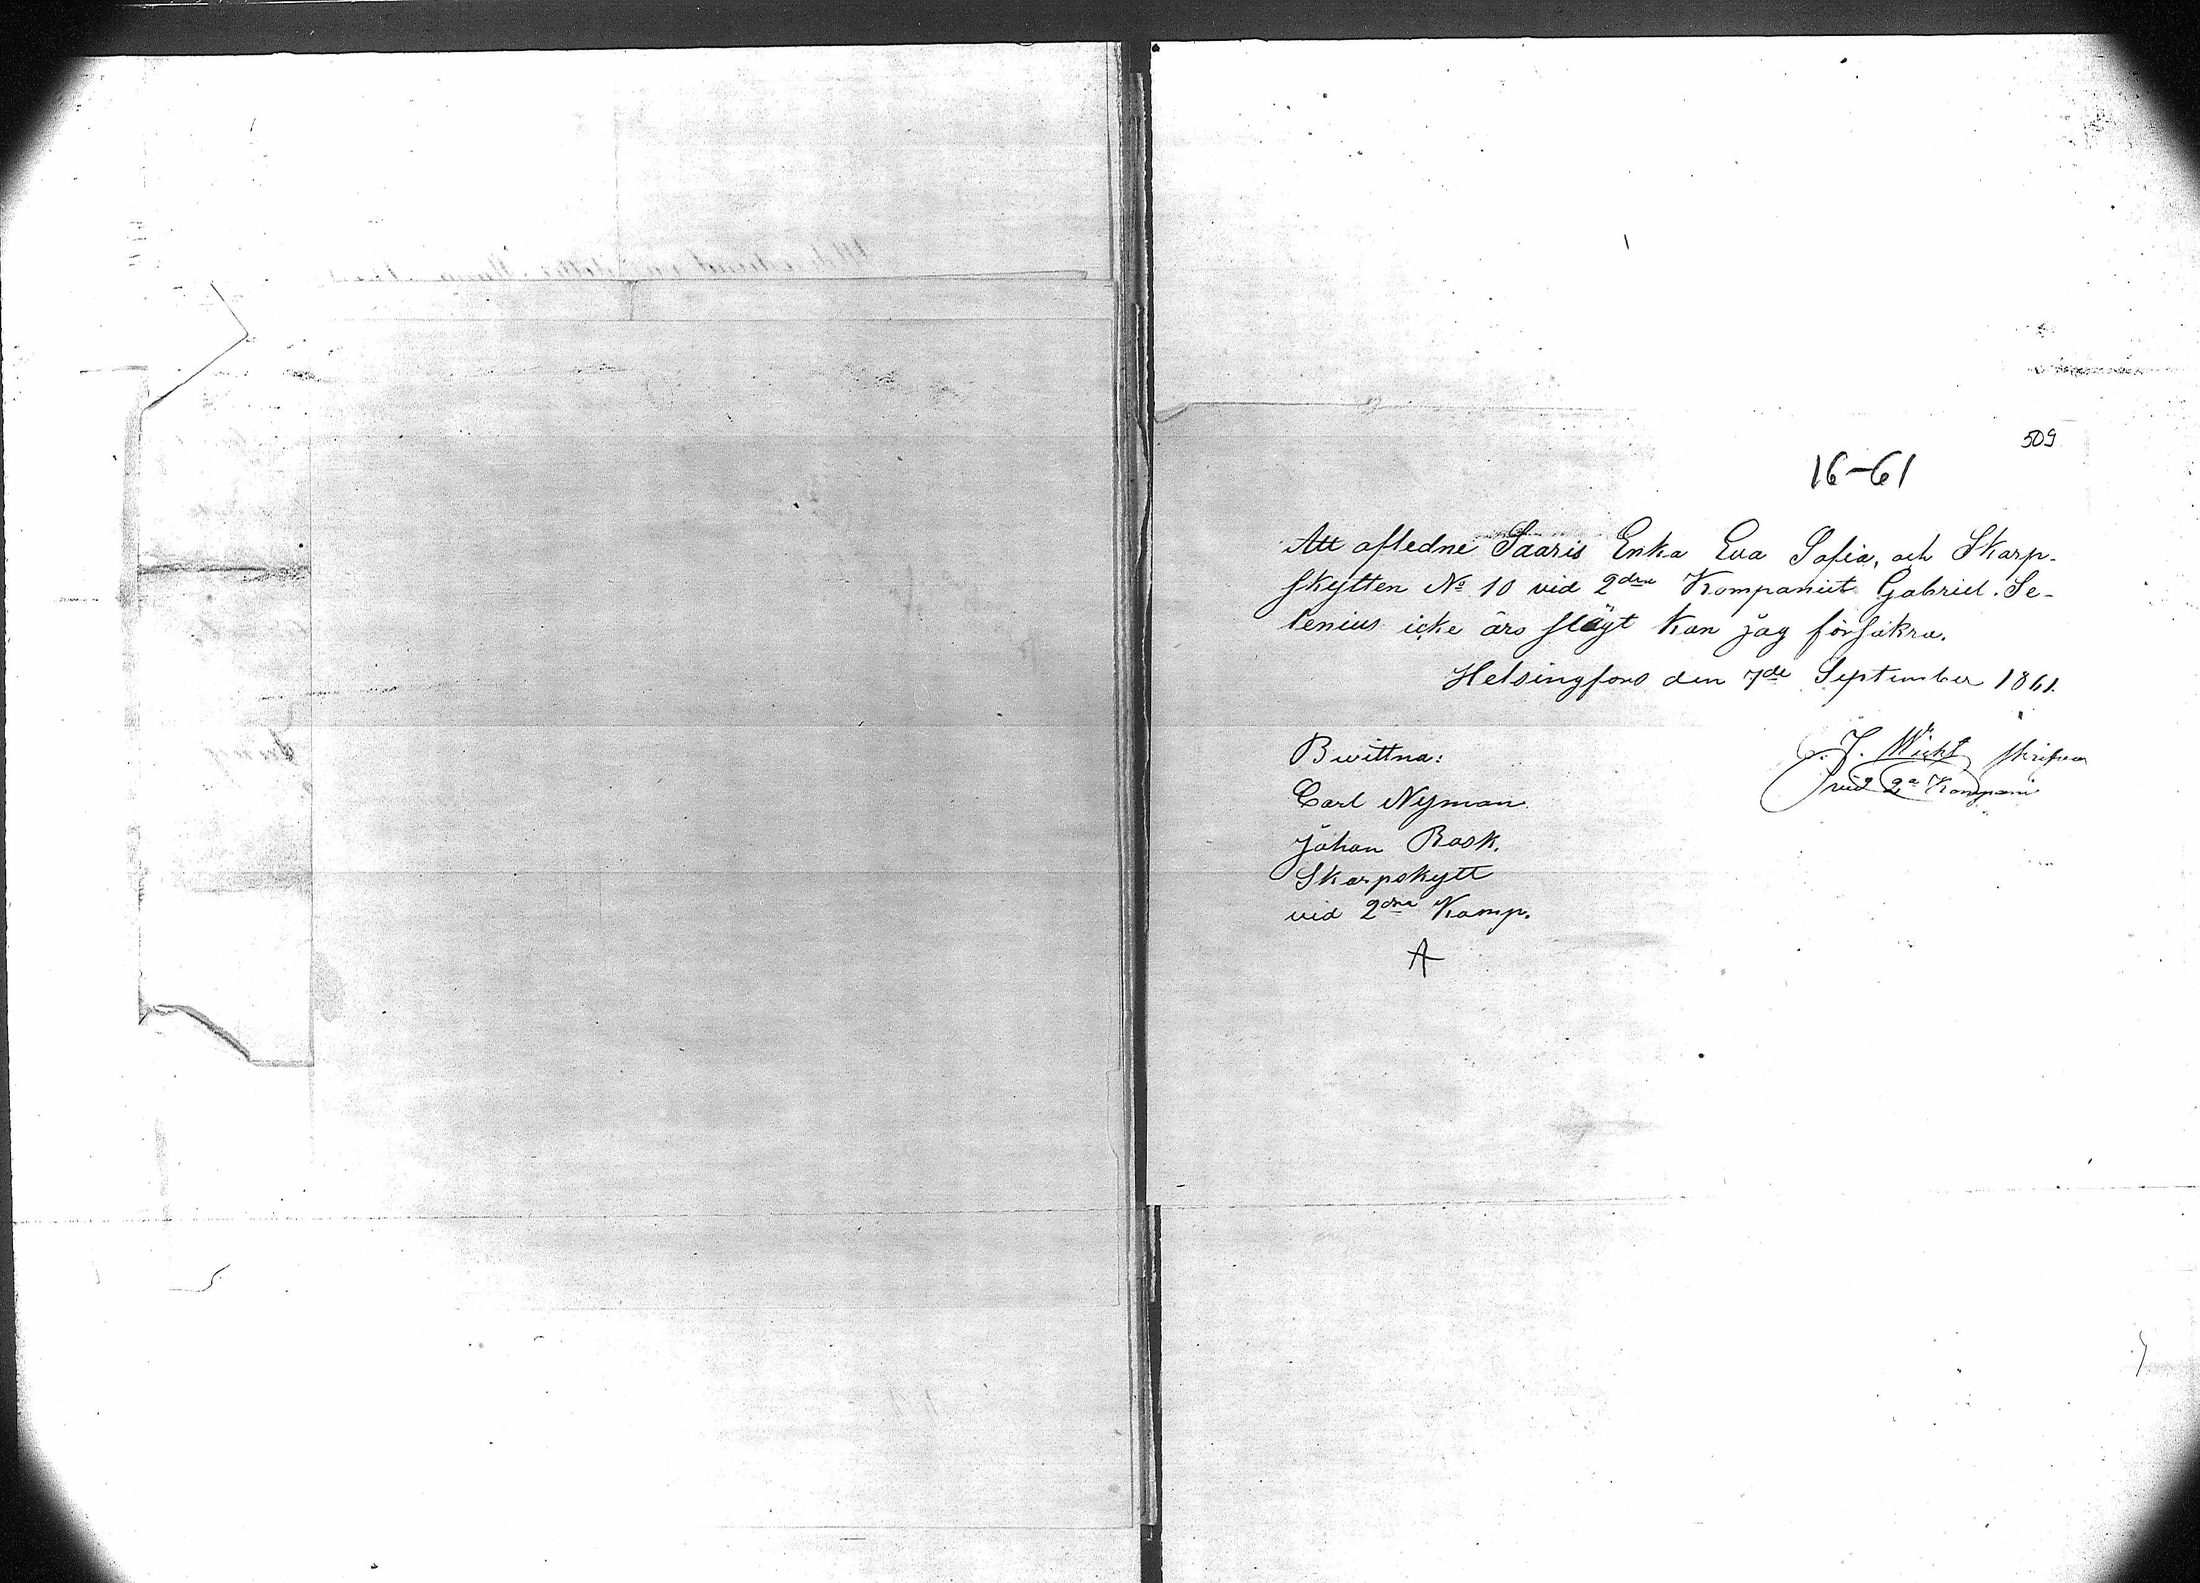 509
16-61
Att afledne Saaris Enka Eva Sofia, och Skarp-
skytten No 10 vid 2dra Kompaniet Gabriel Se-
lenius icke äro slägt kan jag försäkra.
Helsingfors den 7de September 1861.
J. Wicht skrifvare
vid 2a Kompani
Bwittna:
Carl Nyman
Johan Rask.
Skarpskytt
vid 2dra Komp.
A